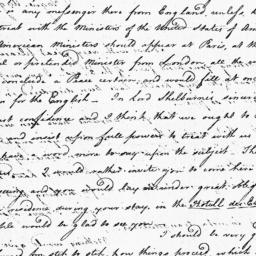 or any messenger there from England, unless, h
treat with the Ministers of the United States of Am
American Ministers should appear at Paris, at th
or pretended Minister from London, all the w
conclude a Peace certain, and would fall at on
in for the English — In Lord Shelburne's sincer
confidence and I think that we ought to
and insist upon full powers to treat with us
have a word more to say upon the subject. Th
I would rather invite you to come here
and you would lay me under great oblig
residence during your stay, in the Hotell des E
would be glad to see you
I should be very
from step to step, how things proceed, which